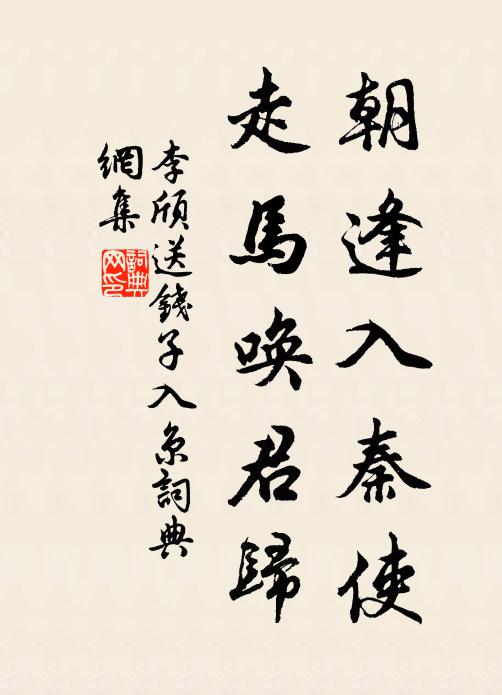 朝逢入秦使
走馬喚君歸
李頎送錢子入京詞典
網集
詞典
网印